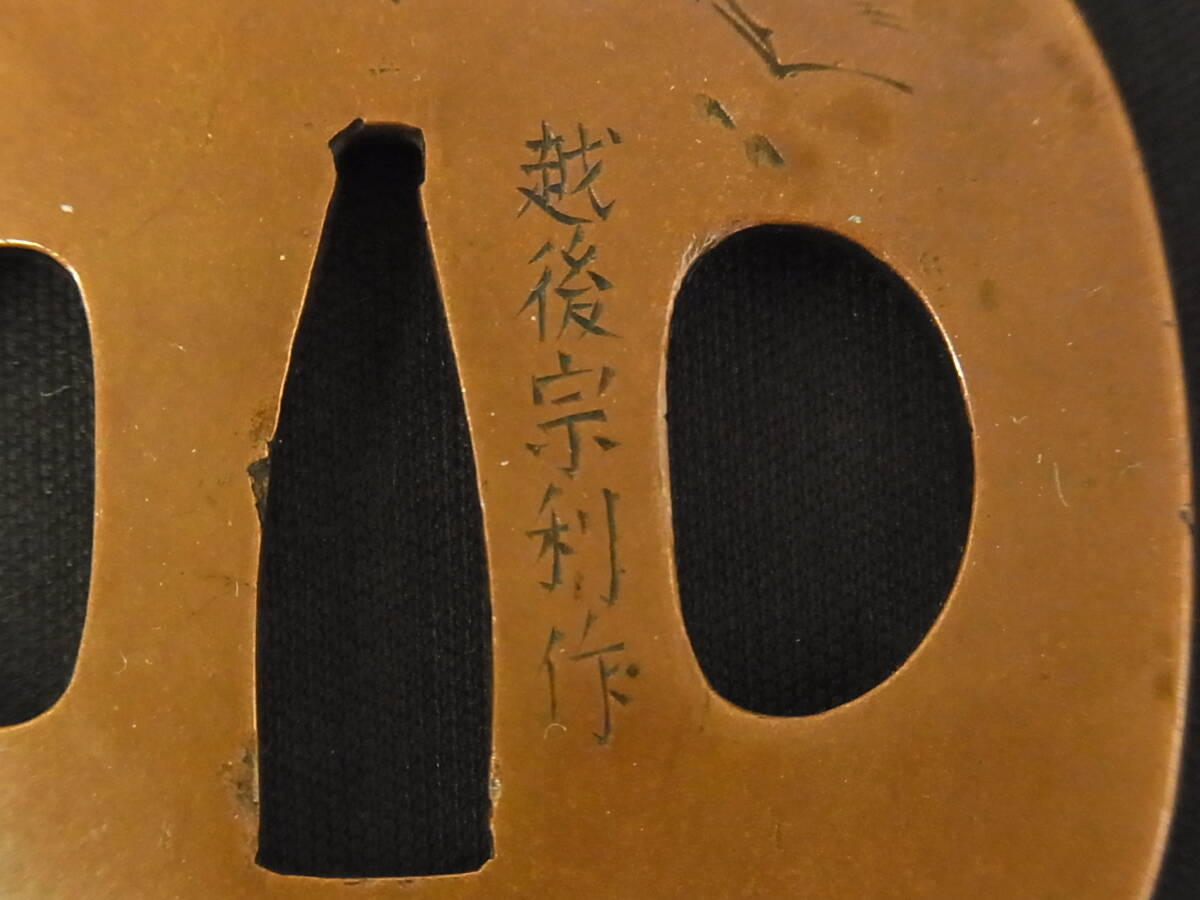 越後宗利作